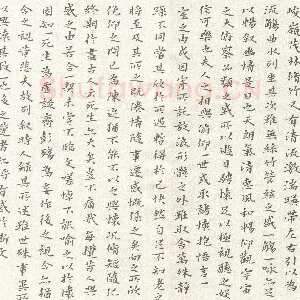 峻嶺茂林脩竹又有清流激湍暎帶左右引以為
流觴曲水列坐其次雖無絲竹管弦之盛一觴一詠亦足
以暢敘幽情是日也天朗氣清惠風和暢仰觀宇宙
之大俯察品類之盛所以遊目騁懷足以極視聽之娛
信可樂也夫人之相與俯仰一世或取諸懷抱悟言一
室之內或因寄所託放浪形骸之外雖取舍萬殊靜
躁不同當其欣於所遇暫得於己快然自足不知老之
將至及其所之既倦情隨事遷感慨係之矣向之所欣
俛仰之間已為陳迹猶不能不以之興懷況脩短隨化
終期於盡古人云死生亦大矣豈不痛哉每攬昔人興
感之由若合一契未嘗不臨文嗟悼不能喻之於懷
固知一死生為虛誕齊彭殤為妄作後之視今亦由
今之視昔悲夫故列敘時人錄其所述雖世殊事異
所以興懷其致一也後之攬者亦將有感於斯文